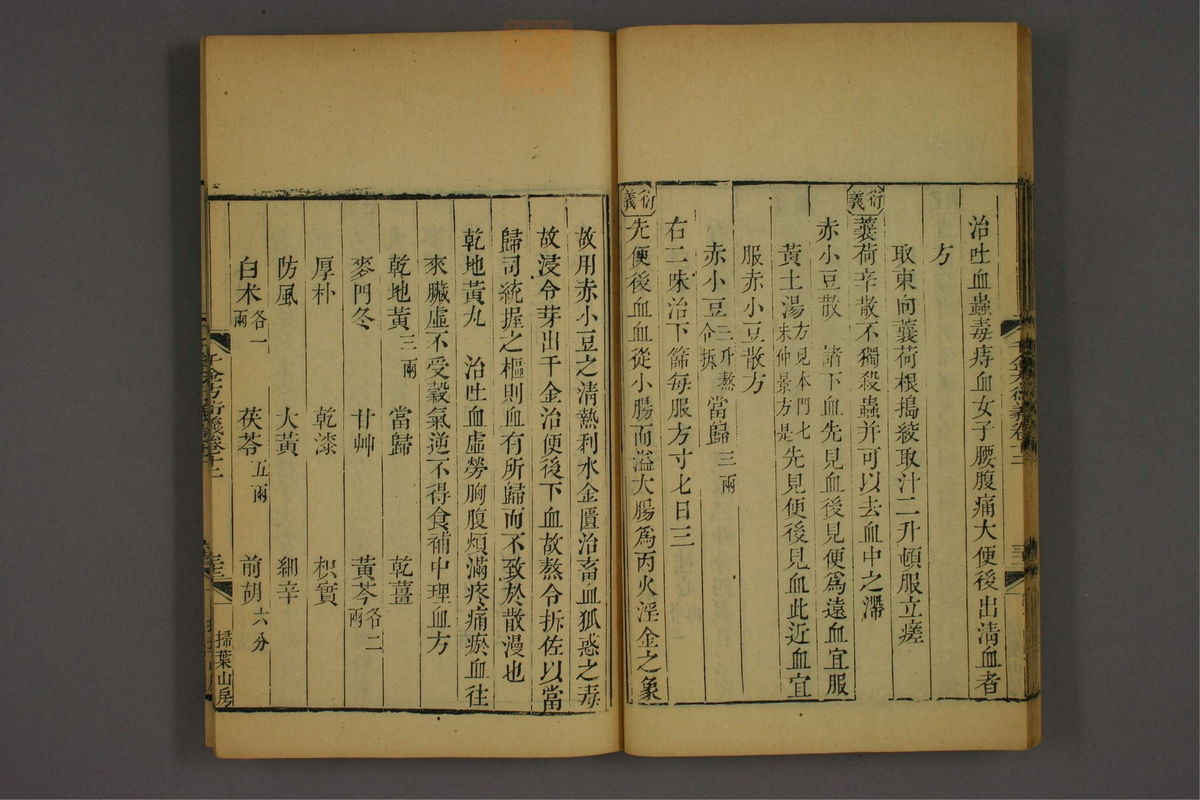 治吐血蟲毒痔血女子腰腹痛大便後出淸血者
方
取東向蘘荷根搗絞取汁二升頓服立瘥
衍義
蘘荷辛散不獨殺蟲并可以去血中之滯
赤小豆散　諸下血先見血後見便爲遠血宜服
黃土湯方見本門七朱仲景方是先見便後見血此近血宜
服赤小豆散方
赤小豆三升熬令拆　當歸三兩
右二味治下篩每服方寸七日三
衍義
先便後血血從小腸而溢大腸爲丙火淫金之象
故用赤小豆之淸熱利水金匱治畜血狐惑之毒
故浸令芽出千金治便後下血故熬令拆佐以當
歸司統握之樞則血有所歸而不致於散漫也
乾地黃丸　治吐血虛勞胸腹煩滿疼痛瘀血往
來臟虛不受穀氣逆不得食補中理血方
乾地黃三兩　當歸　乾薑
麥門冬　甘艸　黃芩各二兩
厚朴　乾漆　枳實
防風　大黃　細辛
白朮各一兩　茯苓五兩　前胡六分
千金方衍義卷十二
掃葉山房